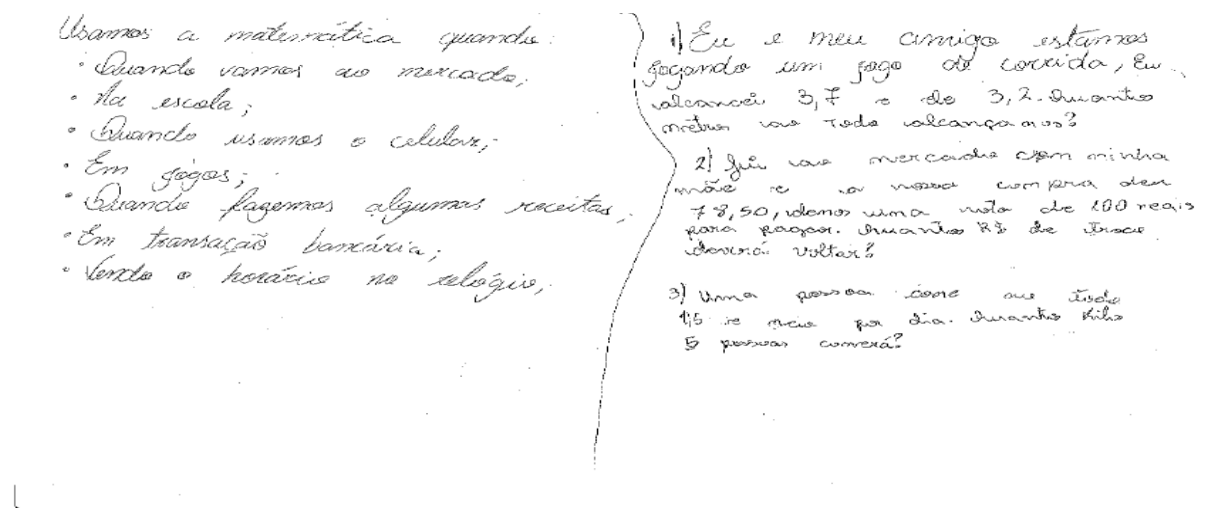 Usamos a matemática quando:
· Quando vamos ao mercado;
· Na escola;
· Quando usamos o celular;
· Em jogos;
· Quando fazemos algumas receitas;
· Em transação bancária;
· Vendo o horário no relógio;
1) Eu e meu amigo estamos
jogando um jogo de corrida, Eu
alcancei 3,7 e ele 3,2. Quantos
metros ao todo alcançamos?
2) Fui ao mercado com minha
mãe e a nossa compra deu
78,50, demos uma nota de 100 reais
para pagar. Quantos R$ de troco
deverá voltar?
3) Uma pessoa come ao todo
1,5 e meio por dia. Quantos Kilo
5 pessoas comerá?